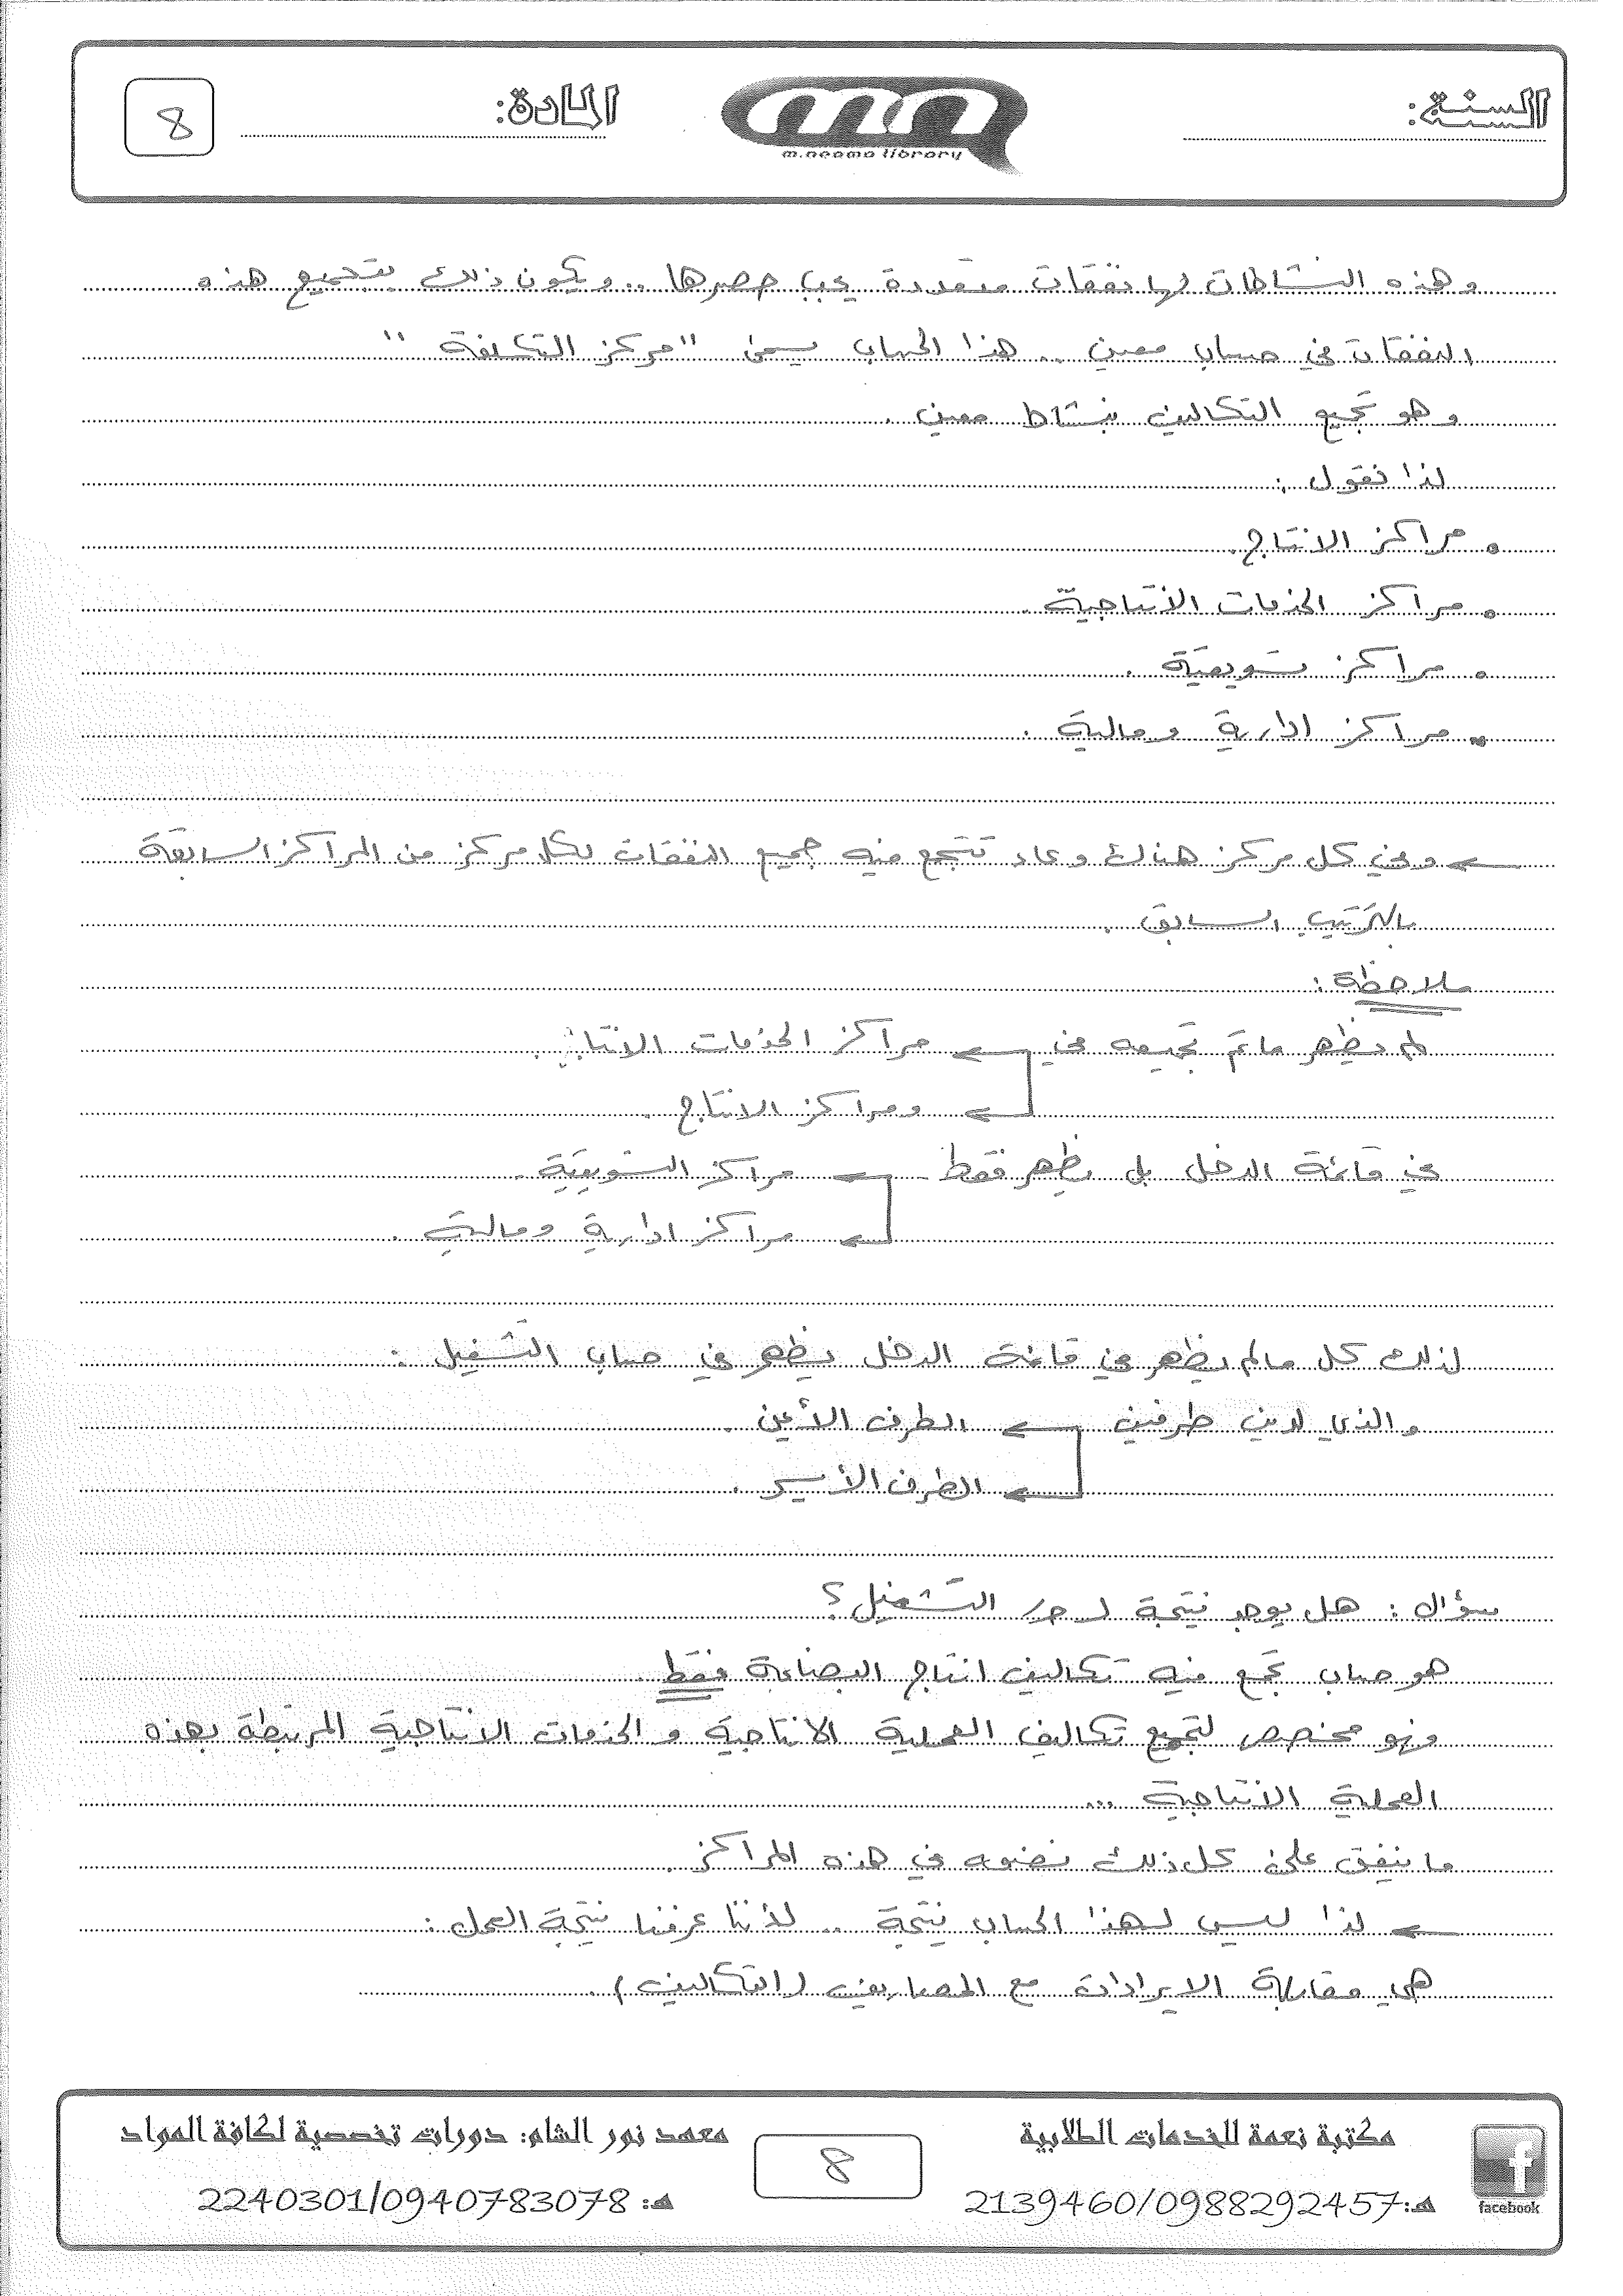 السنة:
المادة:
8
m.neama library
وهذه النشاطات لها نفقات متعددة يجب حصرها .. ويكون ذلك بتجميع هذه
النفقات في حساب معين .. هذا الحساب يسمى "مركز التكلفة"
وهو تجميع التكاليف بنشاط معين .
لذا نقول :
• مراكز الانتاج .
• مراكز الخدمات الانتاجية .
• مراكز تسويقية .
• مراكز ادارية ومالية .
← وفي كل مركز هناك وعاء تتجمع فيه جميع النفقات لكل مركز من المراكز السابقة
بالترتيب السابق .
ملاحظة :
لم يظهر ماتم تجميعه في ← مراكز الخدمات
← ومراكز الانتاج .
في قائمة الدخل بل يظهر فقط ← مراكز التسويقية .
← مراكز ادارية ومالية .
لذلك كل مالم يظهر في قائمة الدخل يظهر في حساب التشغيل :
والذي لديه طرفين ← الطرف الأيمن .
← الطرف الأيسر .
سؤال : هل يوجد نتيجة لـ حـ/ التشغيل ؟
هو حساب تجمع فيه تكاليف انتاج البضاعة فقط .
فهو مخصص لتجميع تكاليف العملية الانتاجية و الخدمات الانتاجية المرتبطة بهذه
العملية الانتاجية ...
ما ينفق على كل ذلك نضعه في هذه المراكز .
← لذا ليس لهذا الحساب نتيجة .. لأننا عرفنا نتيجة العمل :
هي مقابلة الايرادات مع المصاريف (التكاليف) .
مكتبة نعمة للخدمات الطلابية
هـ: 2139460/0988292457
facebook
8
معهد نور الشام: دورات تخصصية لكافة المواد
هـ: 2240301/0940783078